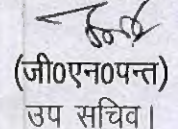 (जी0एन0पन्त)
उप सचिव।